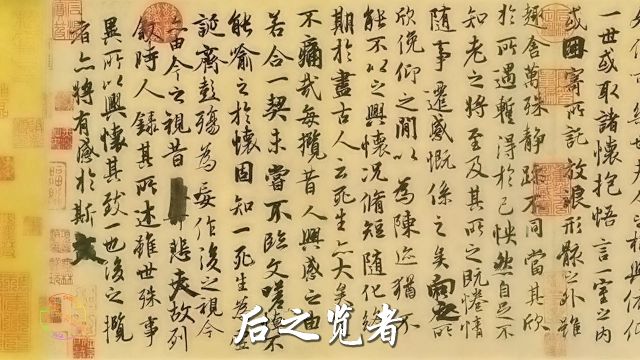 一世或取諸懷抱悟言一室之內
或因寄所託放浪形骸之外雖
趣舍萬殊靜躁不同當其欣
於所遇暫得於己怏然自足不
知老之將至及其所之既惓情
隨事遷感慨係之矣向之所
欣俛仰之間以為陳迹猶不
能不以之興懷況脩短隨化終
期於盡古人云死生亦大矣豈
不痛哉每攬昔人興感之由
若合一契未嘗不臨文嗟悼不
能喻之於懷固知一死生為虛
誕齊彭殤為妄作後之視今
亦由今之視昔悲夫故列
敘時人錄其所述雖世殊事
異所以興懷其致一也後之攬
者亦將有感於斯文
后之览者